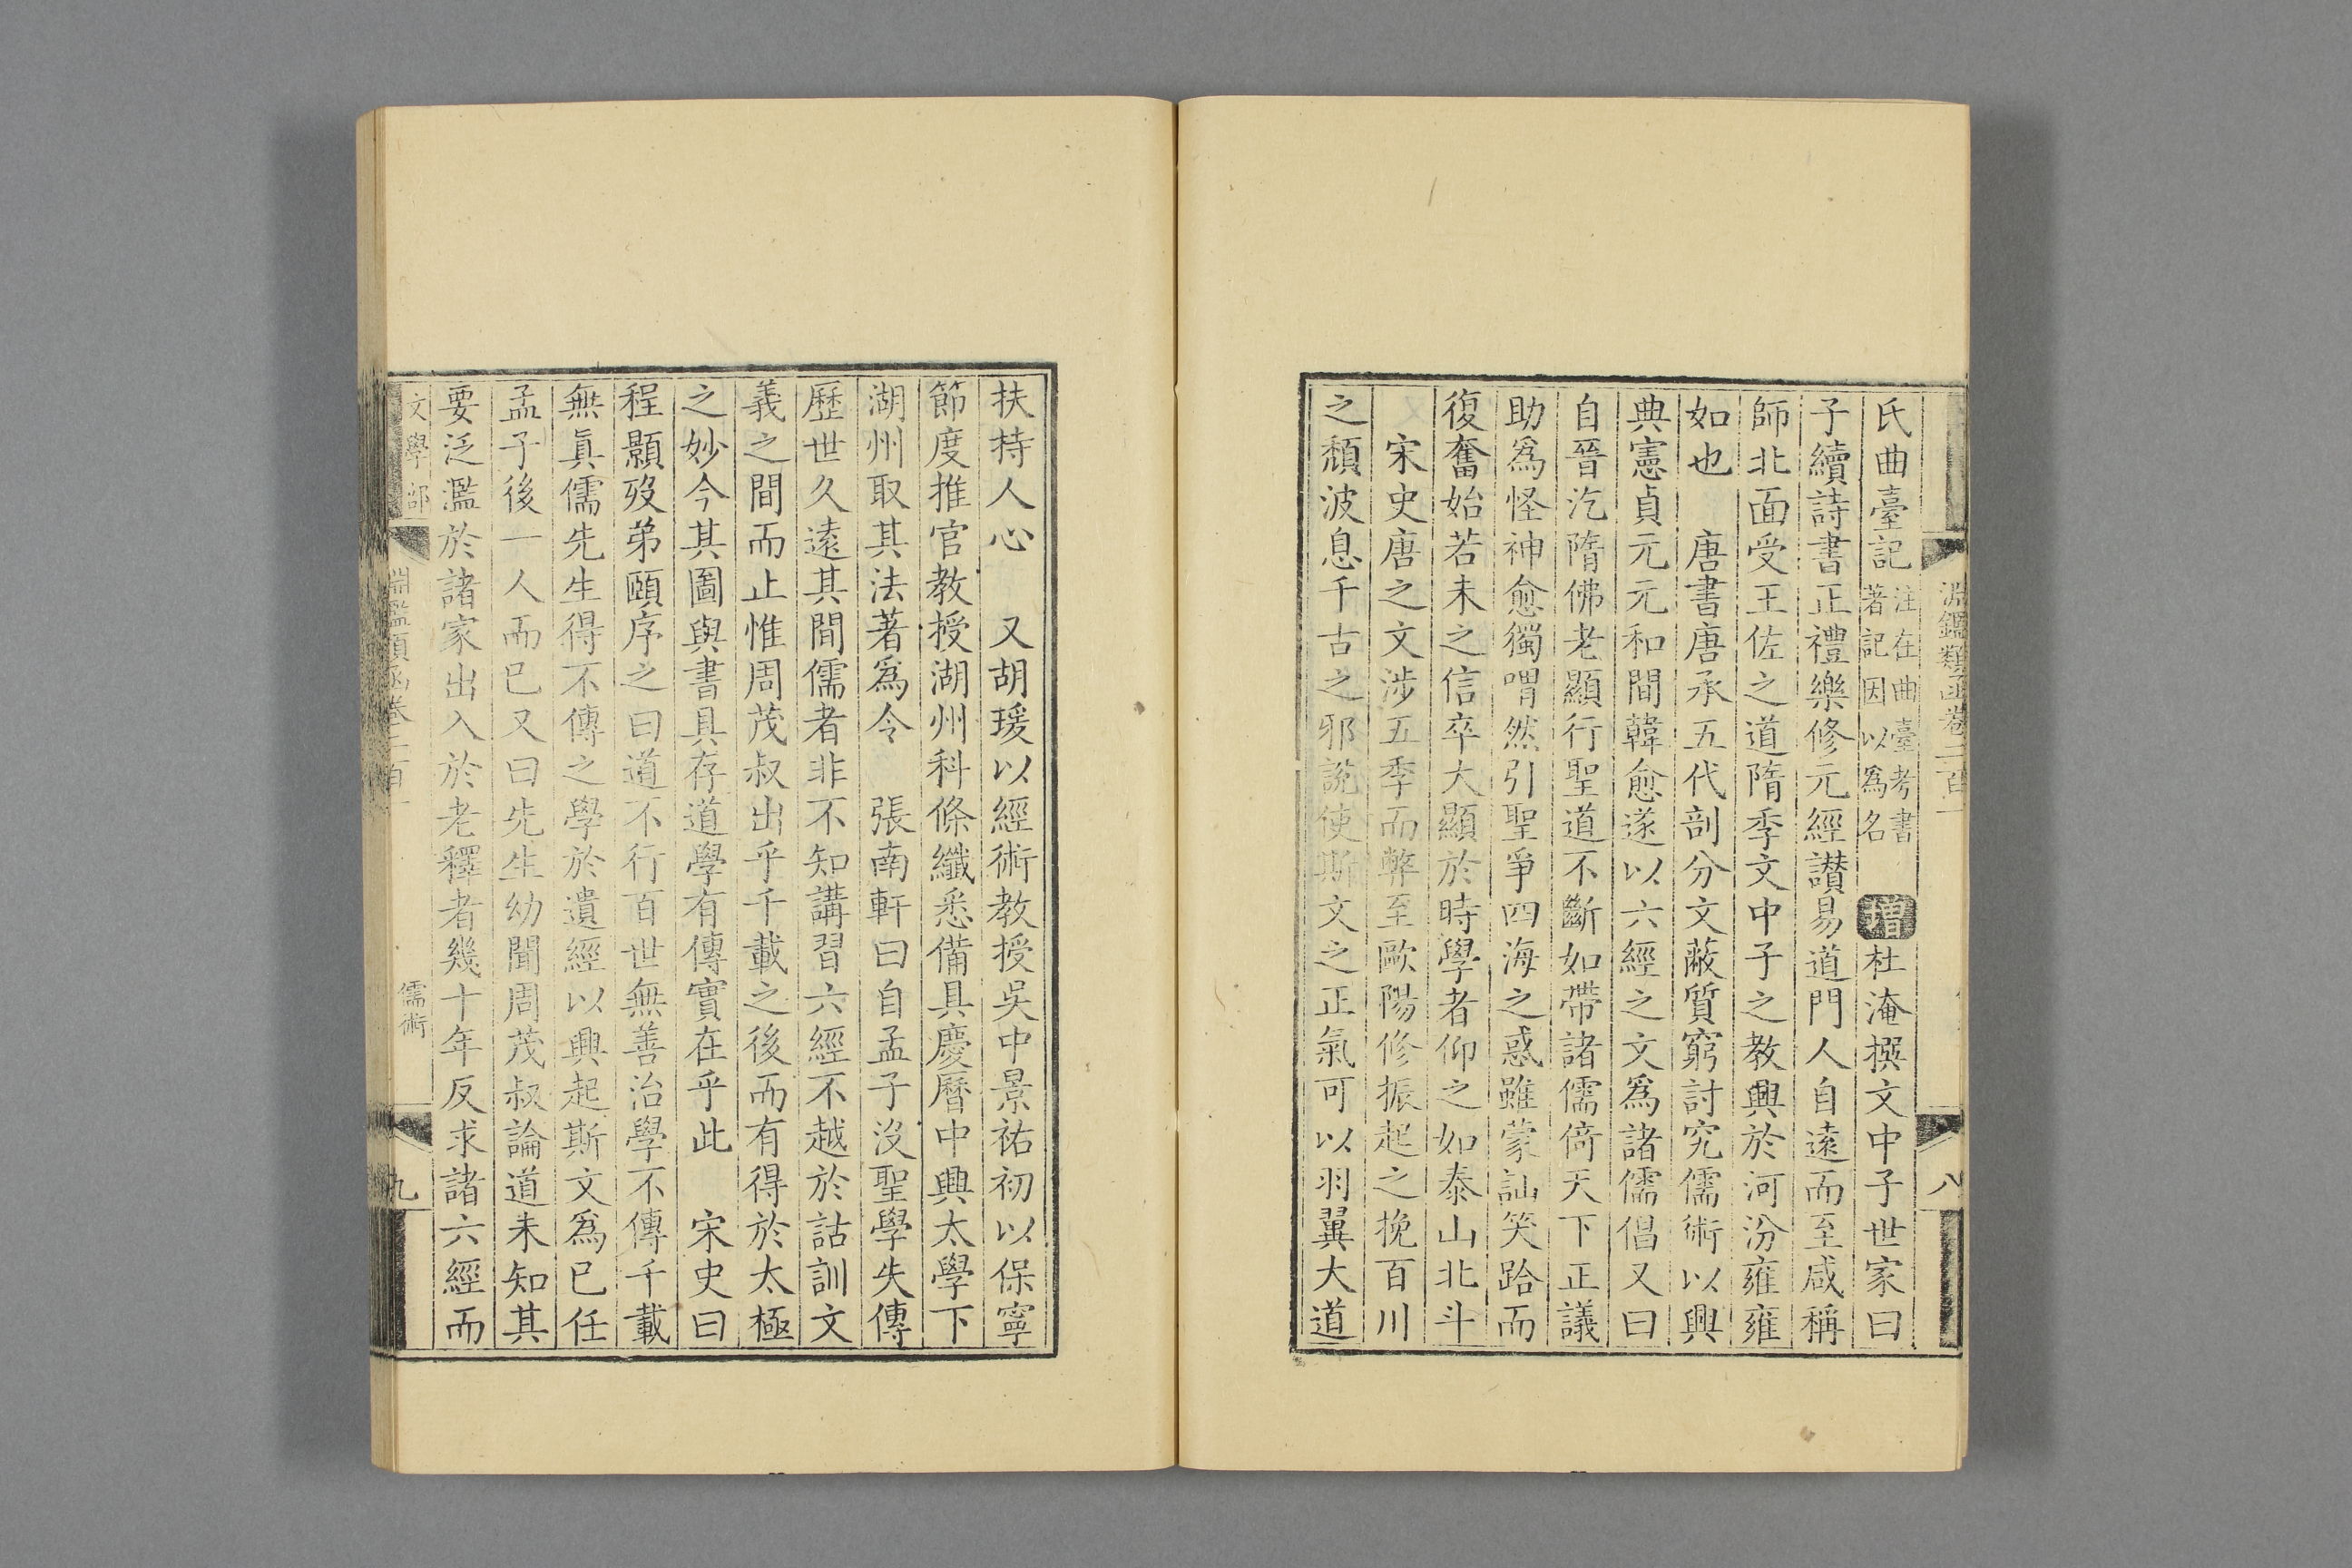 淵鑑類函卷二百一
八
氏曲臺記注在曲臺考書著記因以爲名 增杜淹撰文中子世家曰
子續詩書正禮樂修元經讃易道門人自遠而至咸稱
師北面受王佐之道隋季文中子之教興於河汾雍雍
如也 唐書唐承五代剖分文蔽質窮討究儒術以興
典憲貞元元和間韓愈遂以六經之文爲諸儒倡又曰
自晉汔隋佛老顯行聖道不斷如帶諸儒倚天下正議
助爲怪神愈獨喟然引聖爭四海之惑雖蒙訕笑跲而
復奮始若未之信卒大顯於時學者仰之如泰山北斗
宋史唐之文涉五季而弊至歐陽修振起之挽百川
之頹波息千古之邪說使斯文之正氣可以羽翼大道
扶持人心 又胡瑗以經術教授吳中景祐初以保寧
節度推官教授湖州科條纖悉備具慶曆中興太學下
湖州取其法著爲令 張南軒曰自孟子沒聖學失傳
歷世久遠其間儒者非不知講習六經不越於詁訓文
義之間而止惟周茂叔出乎千載之後而有得於太極
之妙今其圖與書具存道學有傳實在乎此 宋史曰
程顥歿弟頤序之曰道不行百世無善治學不傳千載
無眞儒先生得不傳之學於遺經以興起斯文爲己任
孟子後一人而已又曰先生幼聞周茂叔論道未知其
要泛濫於諸家出入於老釋者幾十年反求諸六經而
文學部
淵鑑類函卷二百一
儒術
九